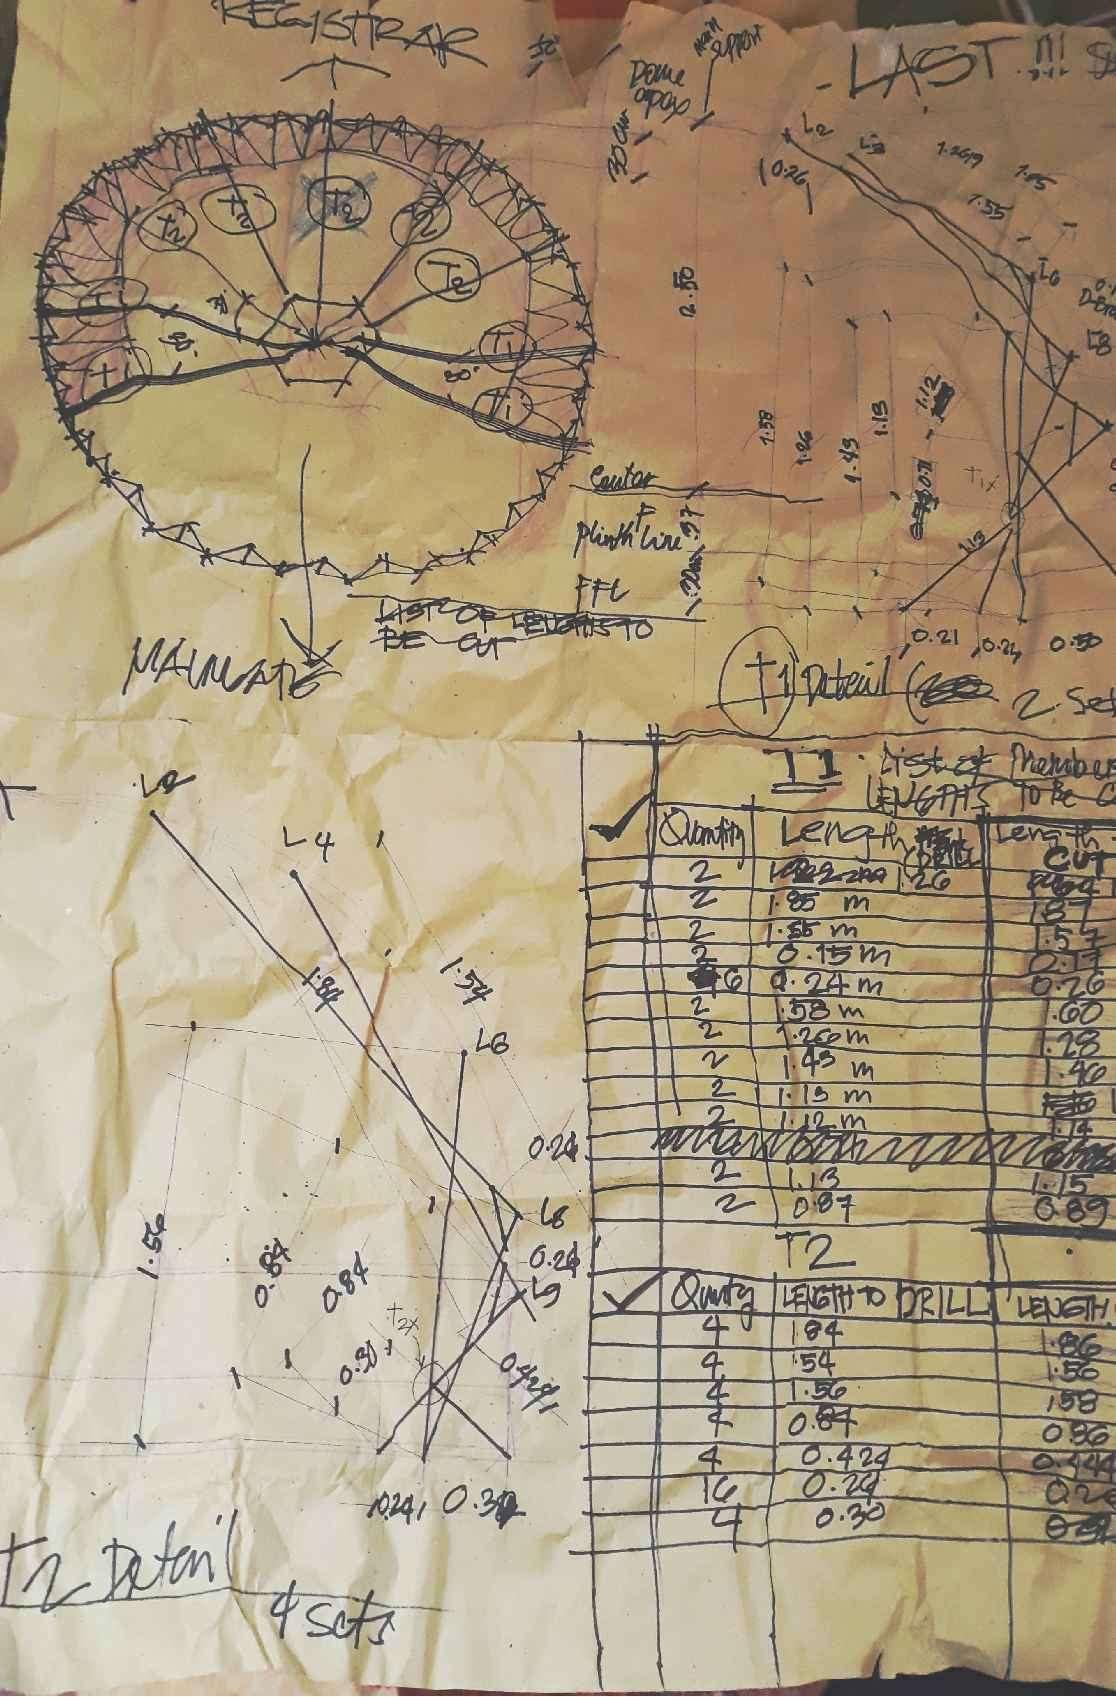 REGISTRAR
Dome
apex
main
support
30cm
LAST !!!
L2
0.26
1.2619
1.85
1.55
L6
L8
T2
T2
T2
T2
T2
T1
T1
T1
T1
30°
30°
2.50
1.58
1.26
1.43
1.13
0.71
1.12
T1x
1.13
Center
F
Plinth Line
.37
FFL
.20m
LIST OF LENGTHS TO
BE CUT
MAINGATE
0.21
0.24
0.50
T1 Detail
2 Set
T1 List of Member
LENGTHS TO BE C
✓ Quantity Length DRILL Length
CUT
2 1.26
2 1.85 m 1.87
2 1.55 m 1.57
2 0.15 m 0.17
6 0.24 m 0.26
2 1.58 m 1.60
2 1.26m 1.28
2 1.43 m 1.46
2 1.13 m
2 1.12 m 1.14
2 1.13 1.15
2 0.87 0.89
T2
✓ Qunty LENGTH TO DRILL LENGTH
4 1.84 1.86
4 1.54 1.56
4 1.56 1.58
4 0.84 0.86
4 0.424 0.444
16 0.24
4 0.30
L2
L4
1.84
1.54
L6
0.24
L8
0.24
L9
1.56
0.84
0.84
T2x
0.30
0.424
0.24
0.30
T2 Detail
4 sets